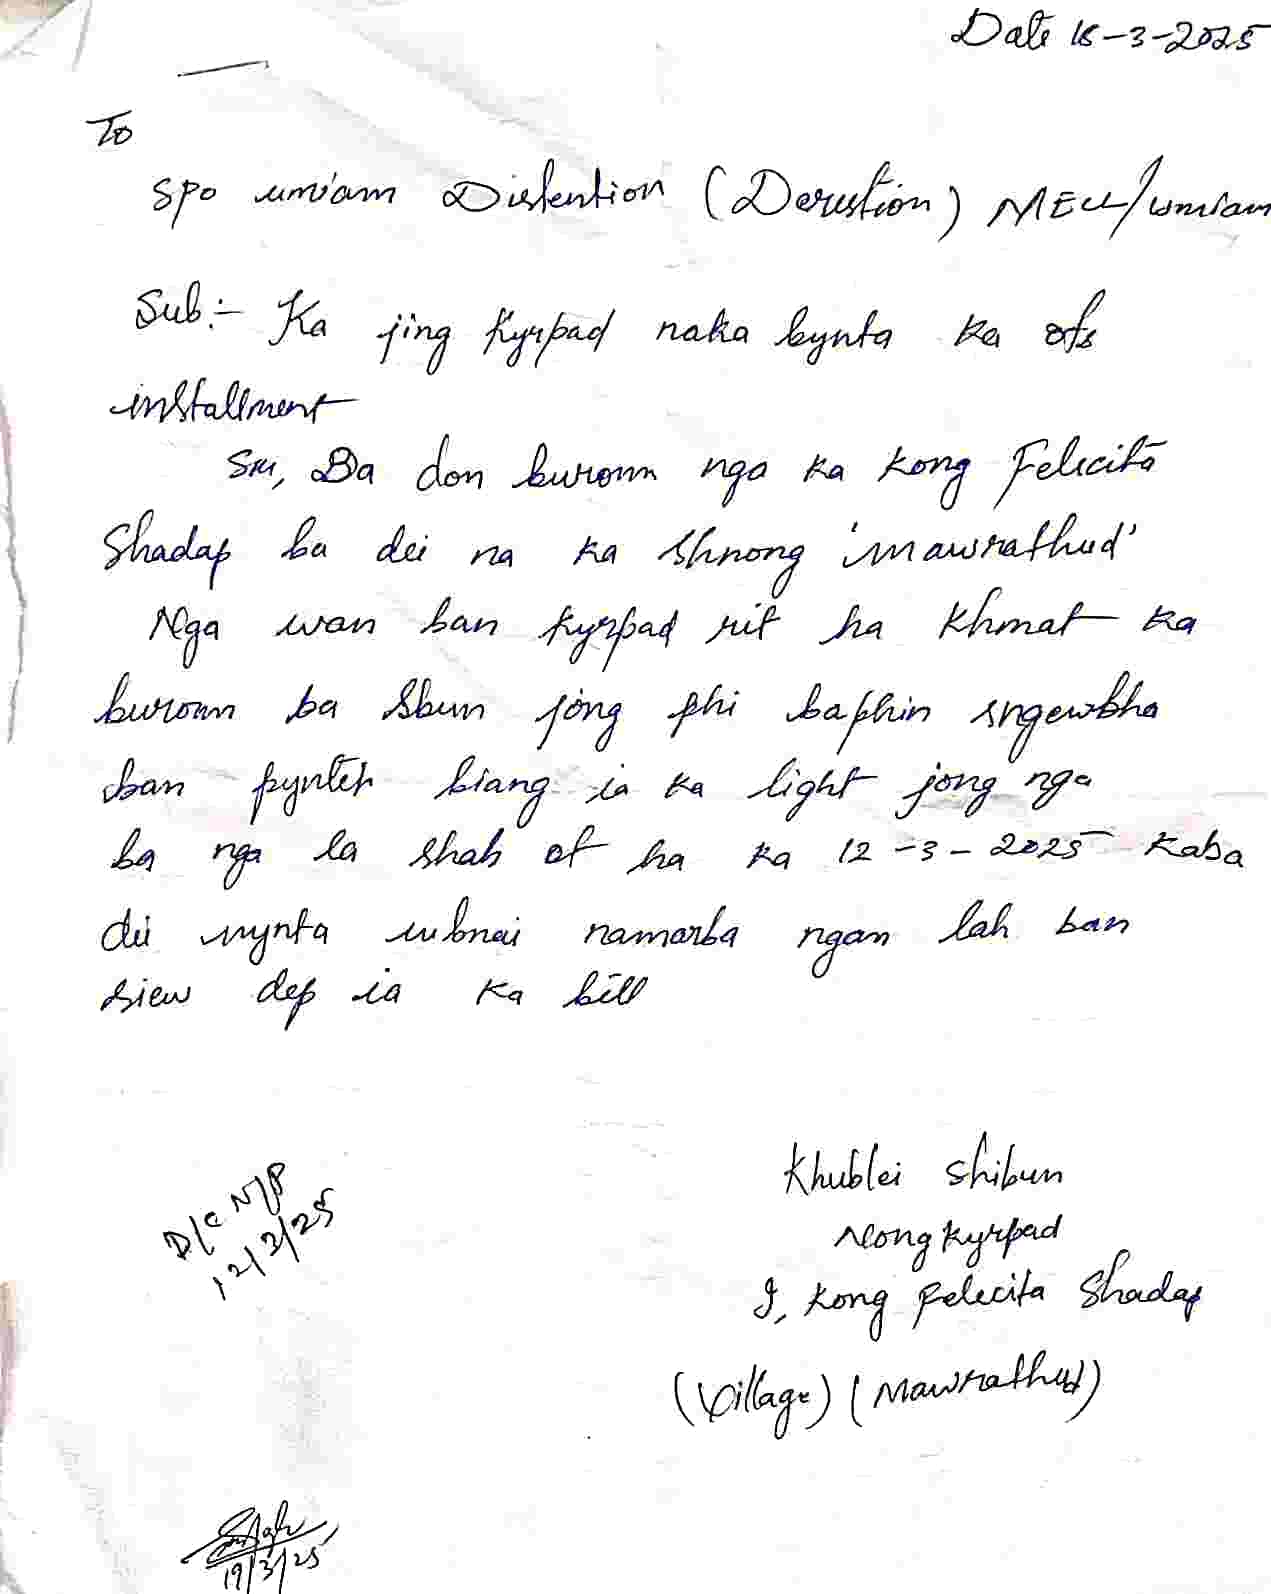 Date 18-3-2025
To
SPO umiam Distention (Derustion) MECL/umiam
Sub:- Ka jing Kyrpad naka bynta ka ofs
installment
Sir, Ba don burom nga ka Kong Felicita
Shadap ba dei na ka Shnong 'mawrathud'
Nga wan ban kyrpad rit ha Khmat ka
burom ba Sbun jong phi baphin sngewbha
ban pynter biang ia ka light jong nga
ba nga la shah of ha ka 12-3-2025 kaba
dei mynta namarba ngan lah ban
siew dep ia ka bill
Khublei Shibun
Nong Kyrpad
I, Kong Felicita Shadap
(Village) (Mawrathud)
D/C N/P
12/3/25
19/3/25